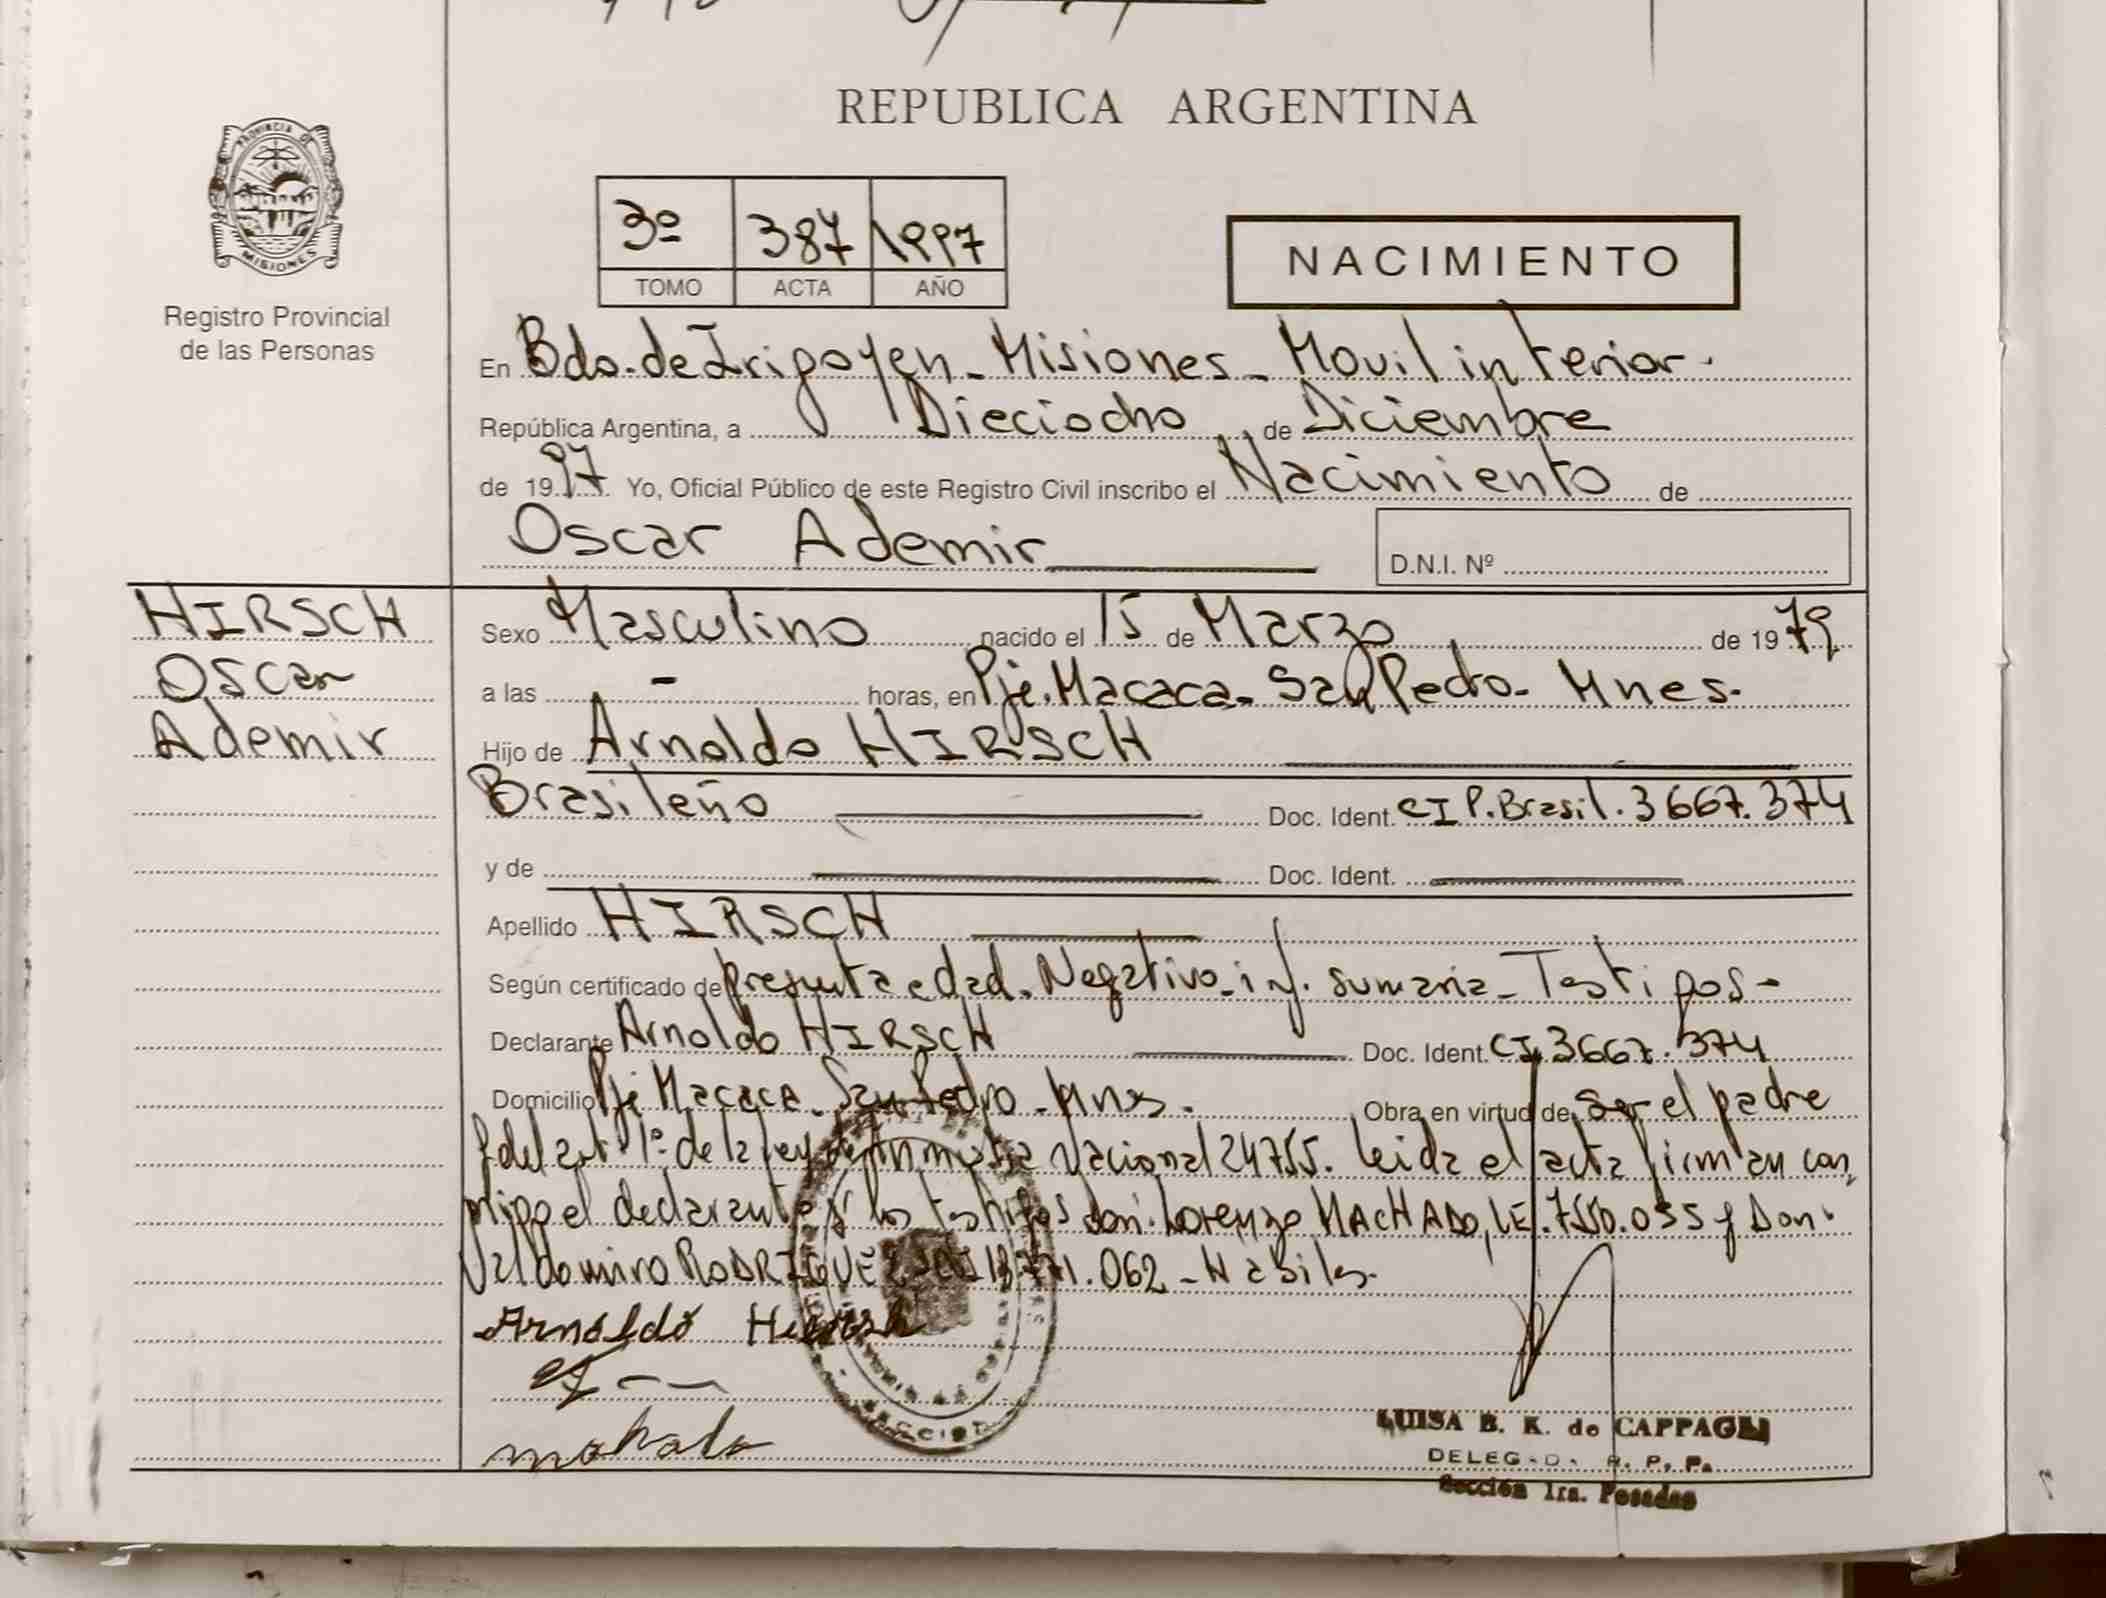 REPUBLICA ARGENTINA
PROVINCIA DE
MISIONES
Registro Provincial
de las Personas
3º 387 1997
TOMO ACTA AÑO
NACIMIENTO
En Bdo. de Irigoyen - Misiones - Movil interior -
República Argentina, a Dieciocho de Diciembre
de 1997. Yo, Oficial Público de este Registro Civil inscribo el Nacimiento de
Oscar Ademir
D.N.I. Nº
HIRSCH
Oscar
Ademir
Sexo Masculino nacido el 15 de Marzo de 1979
a las - horas, en Pje. Macaca - San Pedro - Mnes.
Hijo de Arnoldo HIRSCH
Brasileño Doc. Ident. CI P. Brasil. 3667.374
y de Doc. Ident.
Apellido HIRSCH
Según certificado de presunta edad - Negativo - inf. sumaria - Testigos -
Declarante Arnoldo HIRSCH Doc. Ident. CI. 3667.374
Domicilio Pje Macaca - San Pedro - Mnes. Obra en virtud de ser el padre
y del art. 1º de la ley de Amnistia Nacional 24755. Leida el acta firman con
migo el declarante y los testigos don: Lorenzo MACHADO, LE. 7550.055 y Don:
Valdomiro RODRIGUEZ 18771.062 - Habiles -
Arnoldo Hirsch
LUISA B. K. de CAPPAGLI
DELEGADA R. P. P.
Sección 1ra. Posadas